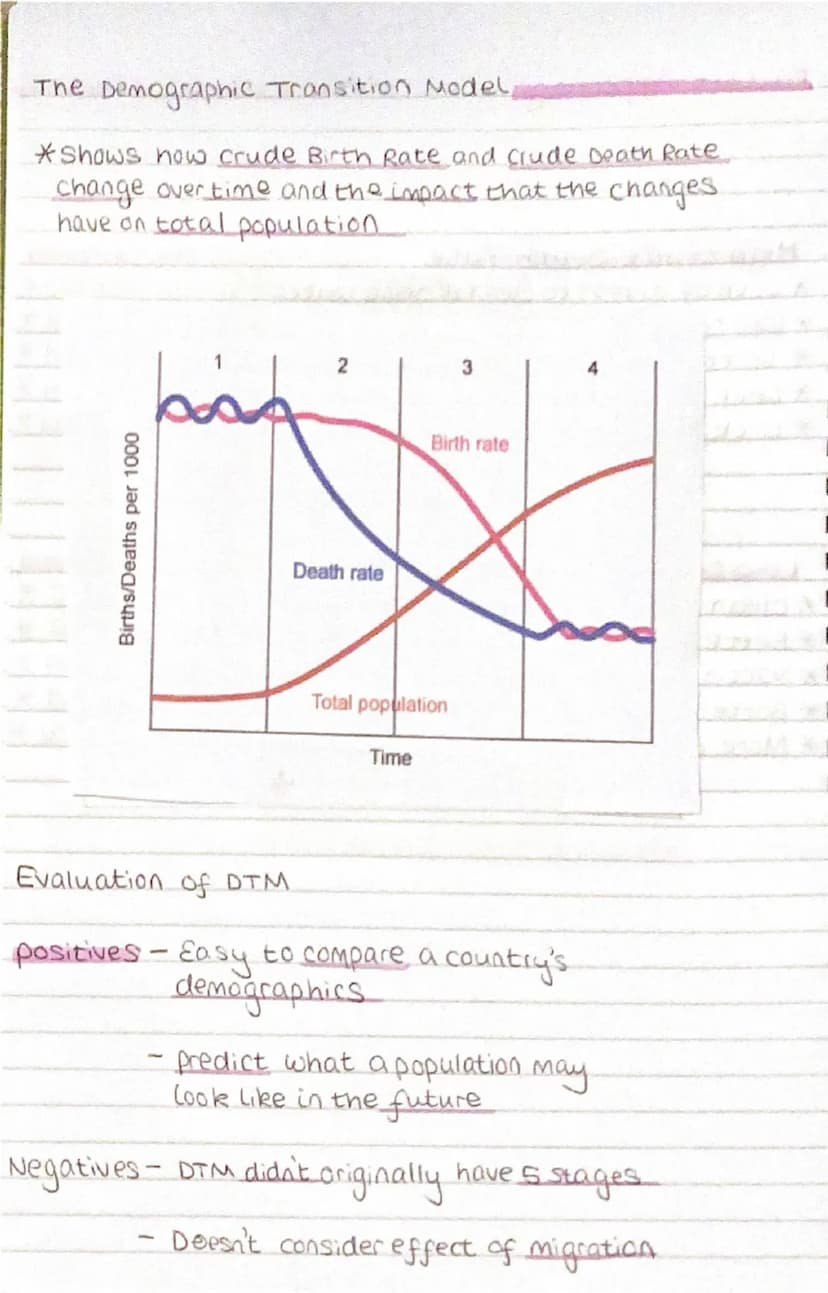 The Demographic Transition Model
* Shows how crude Birth Rate and Crude Death Rate
change over time and the impact that the changes
have on total population
1 2 3 4
Birth rate
Births/Deaths per 1000
Death rate
Total population
Time
Evaluation of DTM
positives - Easy to compare a country's
demographics
- predict what a population may
look like in the future
Negatives - DTM didn't originally have 5 stages
- Doesn't consider effect of migration